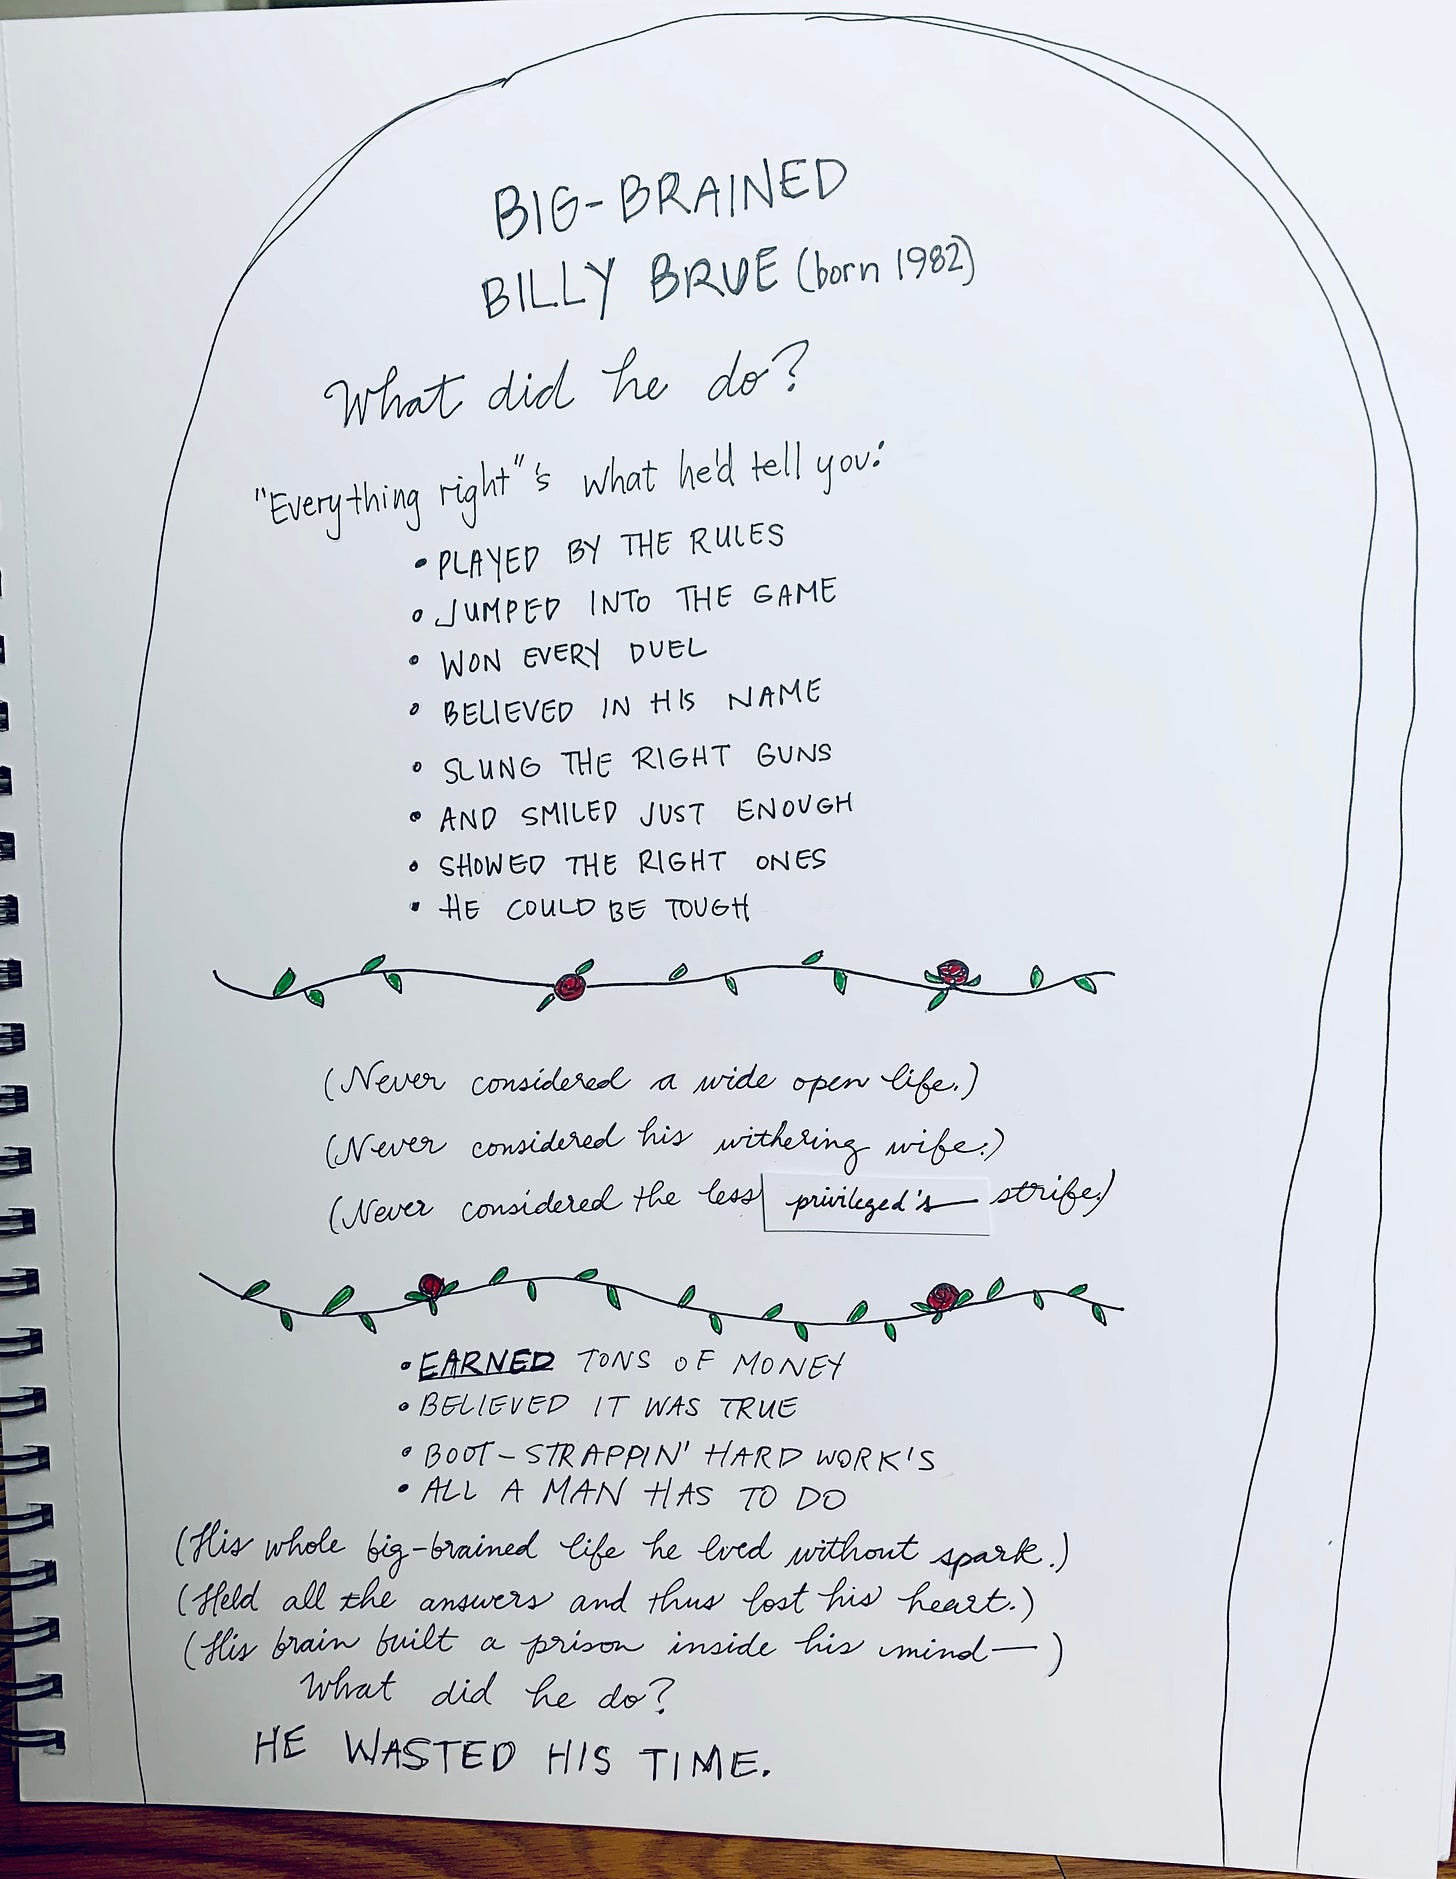 BIG-BRAINED
BILLY BRUE (born 1982)
What did he do?
"Everything right"'s what he'd tell you:
• PLAYED BY THE RULES
• JUMPED INTO THE GAME
• WON EVERY DUEL
• BELIEVED IN HIS NAME
• SLUNG THE RIGHT GUNS
• AND SMILED JUST ENOUGH
• SHOWED THE RIGHT ONES
• HE COULD BE TOUGH
(Never considered a wide open life.)
(Never considered his withering wife.)
(Never considered the less privileged's strife.)
• EARNED TONS OF MONEY
• BELIEVED IT WAS TRUE
• BOOT-STRAPPIN' HARD WORK'S
• ALL A MAN HAS TO DO
(His whole big-brained life he lved without spark.)
(Held all the answers and thus lost his heart.)
(His brain built a prison inside his mind—)
What did he do?
HE WASTED HIS TIME.